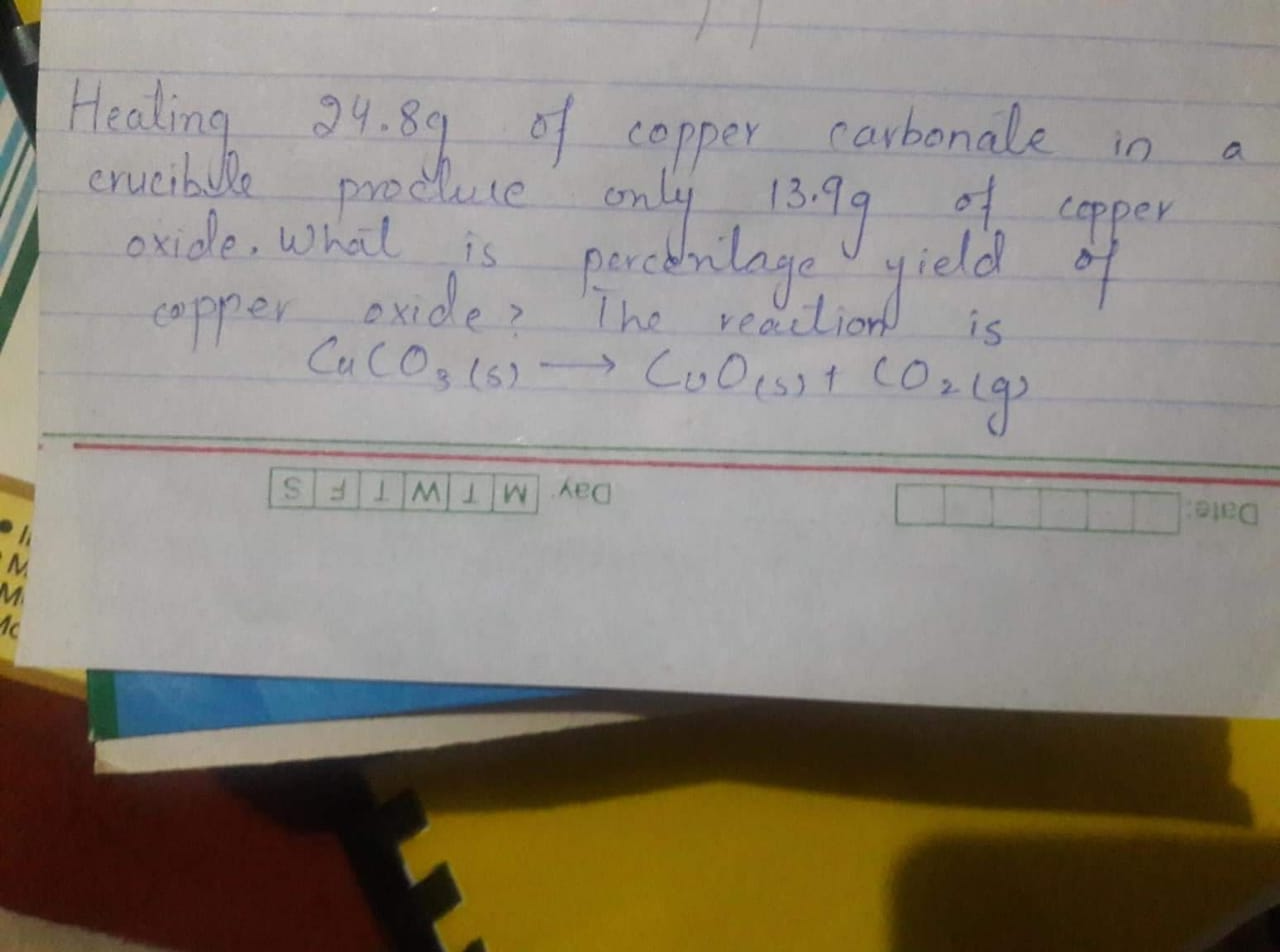 Heating 24.8g of copper carbonate in a
crucible produce only 13.9g of copper
oxide. What is percentage yield of
copper oxide? The reaction is
CuCO₃(s) → CuO(s) + CO₂(g)
Day: M T W T F S
Date: